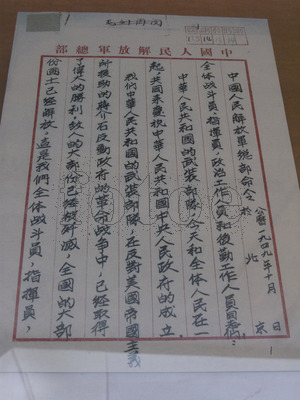 中國人民解放軍總部
中國人民解放軍總部命令 於
公曆一九四九年十月 日
北京
全体战斗員、指揮員、政治工作人員和後勤工作人員同志們：
中華人民共和國的武装部隊，今天和全体人民在一
起，共同來慶祝中華人民共和國中央人民政府的成立。
我們中華人民共和國的武装部隊，在反對美國帝國主義
所援助的蔣介石反動政府的革命战争中，已經取得
了偉大的勝利，敌人的大部份已經被歼滅，全國的大部
份國土已經解放，這是我們全体战斗員，指揮員，
fotoe